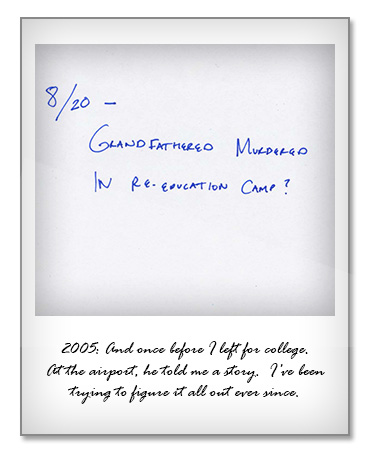 8/20 –
GRANDFATHERED MURDERED
IN RE-EDUCATION CAMP?
2005: And once before I left for college.
At the airport, he told me a story. I've been
trying to figure it all out ever since.